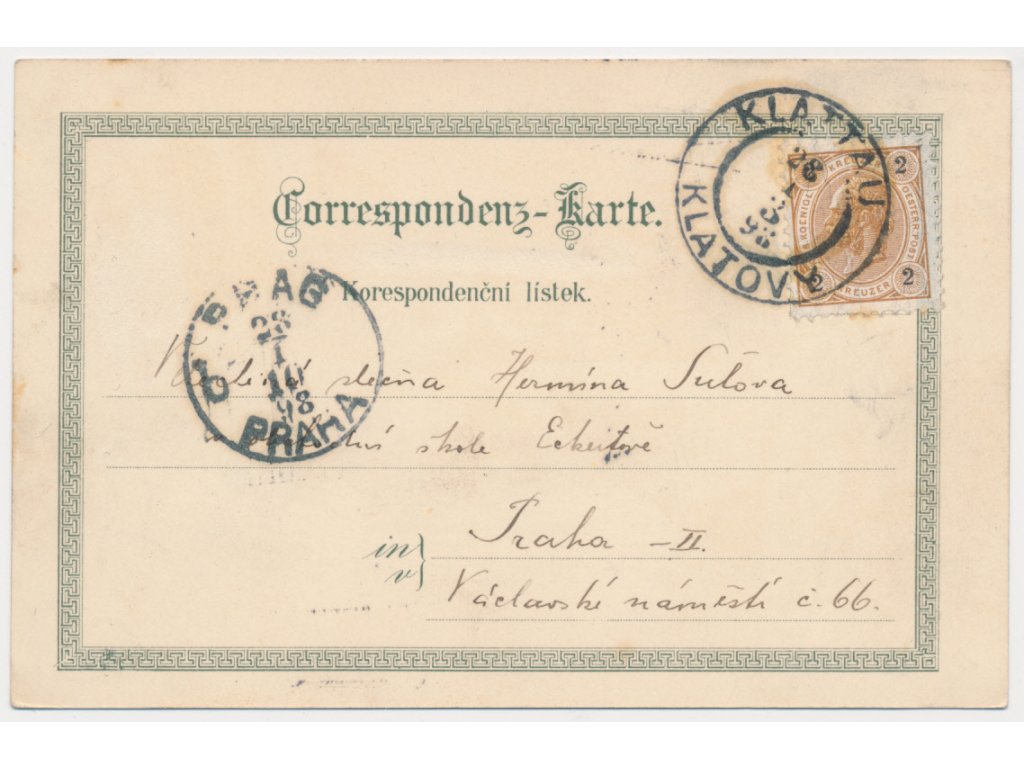 KLATTAU
28
98
KLATOVY
2
2
2
KREUZER
Correspondenz-Karte.
Korespondenční lístek.
PRAG
28
1
10
98
PRAHA
slečna Hermína Šútova
škole
Praha - II.
in
v
Václavské náměstí č. 66.